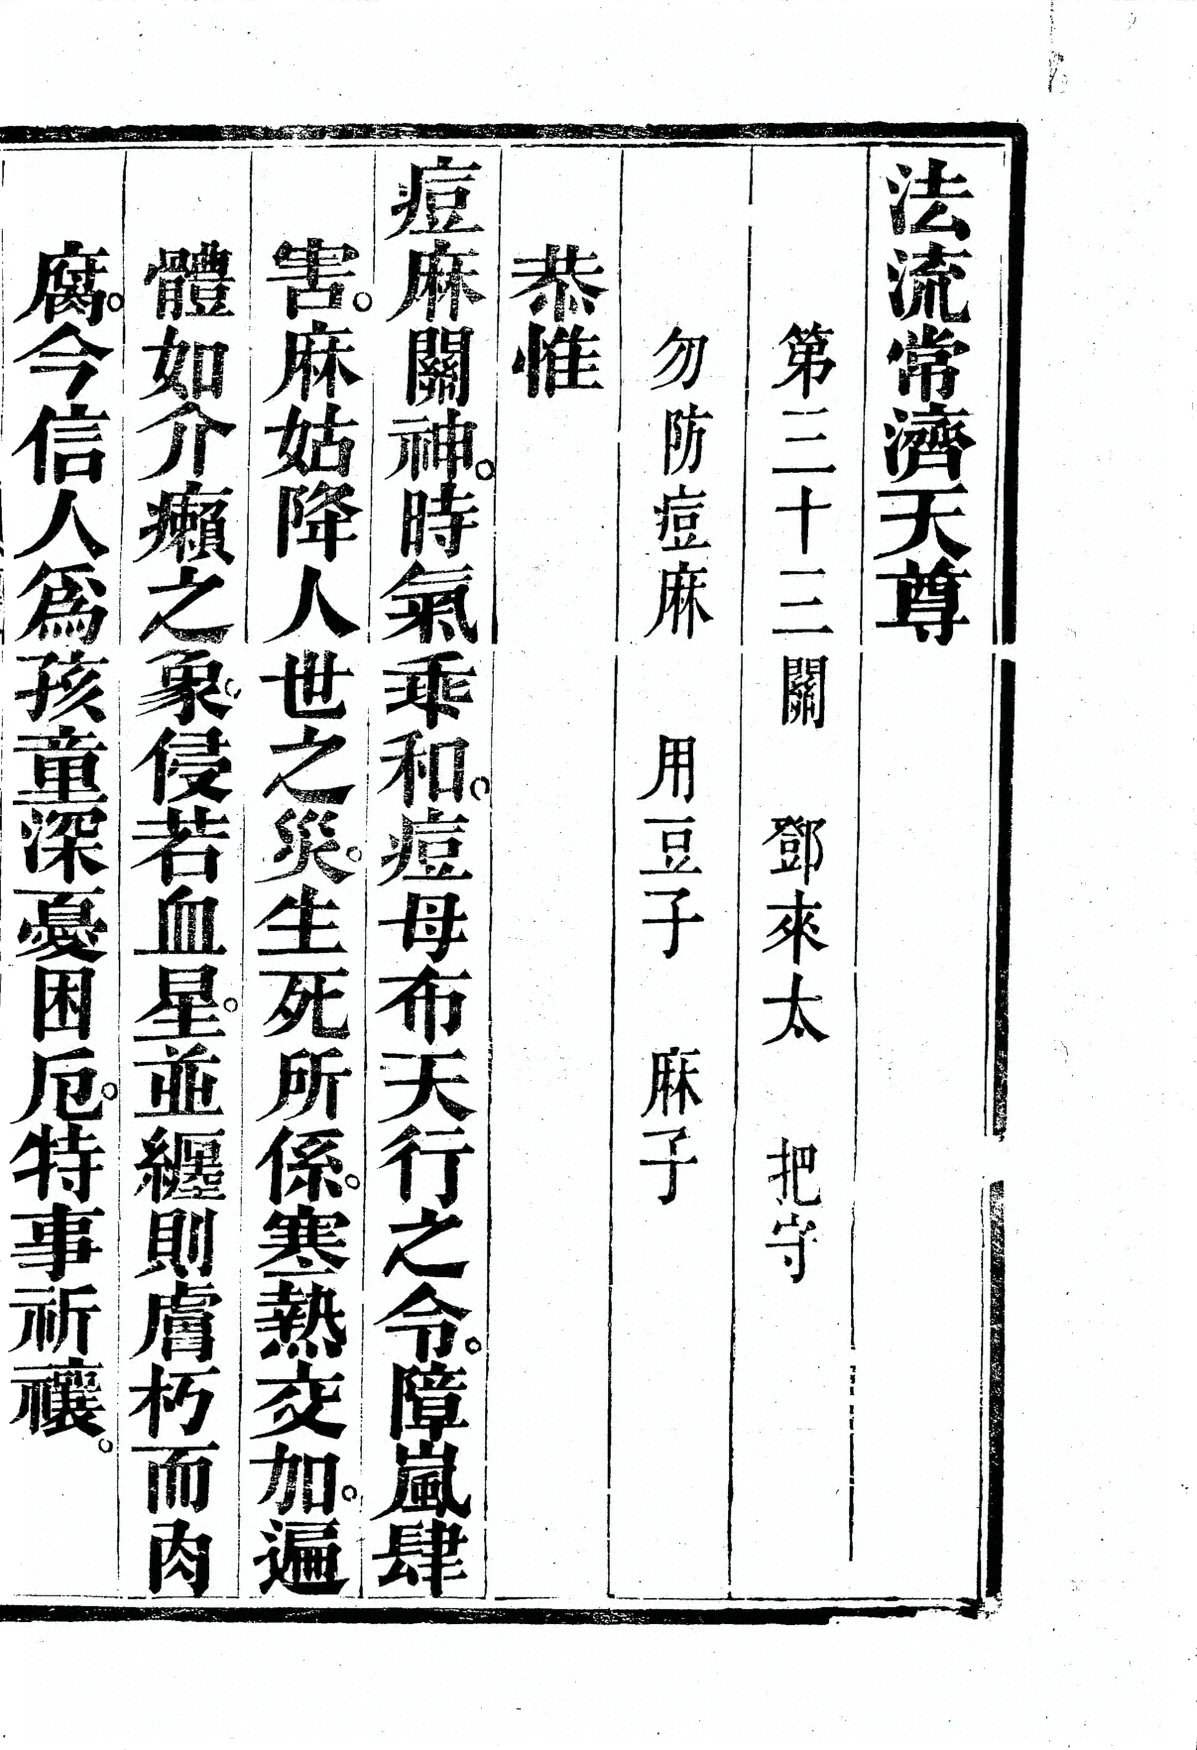 法流常濟天尊
第三十三關 鄧來太 把守
勿防痘麻 用豆子 麻子
恭惟
痘麻關神。時氣乖和。痘母布天行之令。障嵐肆
害。麻姑降人世之災。生死所係。寒熱交加。遍
體如介癩之象。侵若血星。並纏則膚朽而肉
腐。今信人爲孩童深憂困厄。特事祈禳。